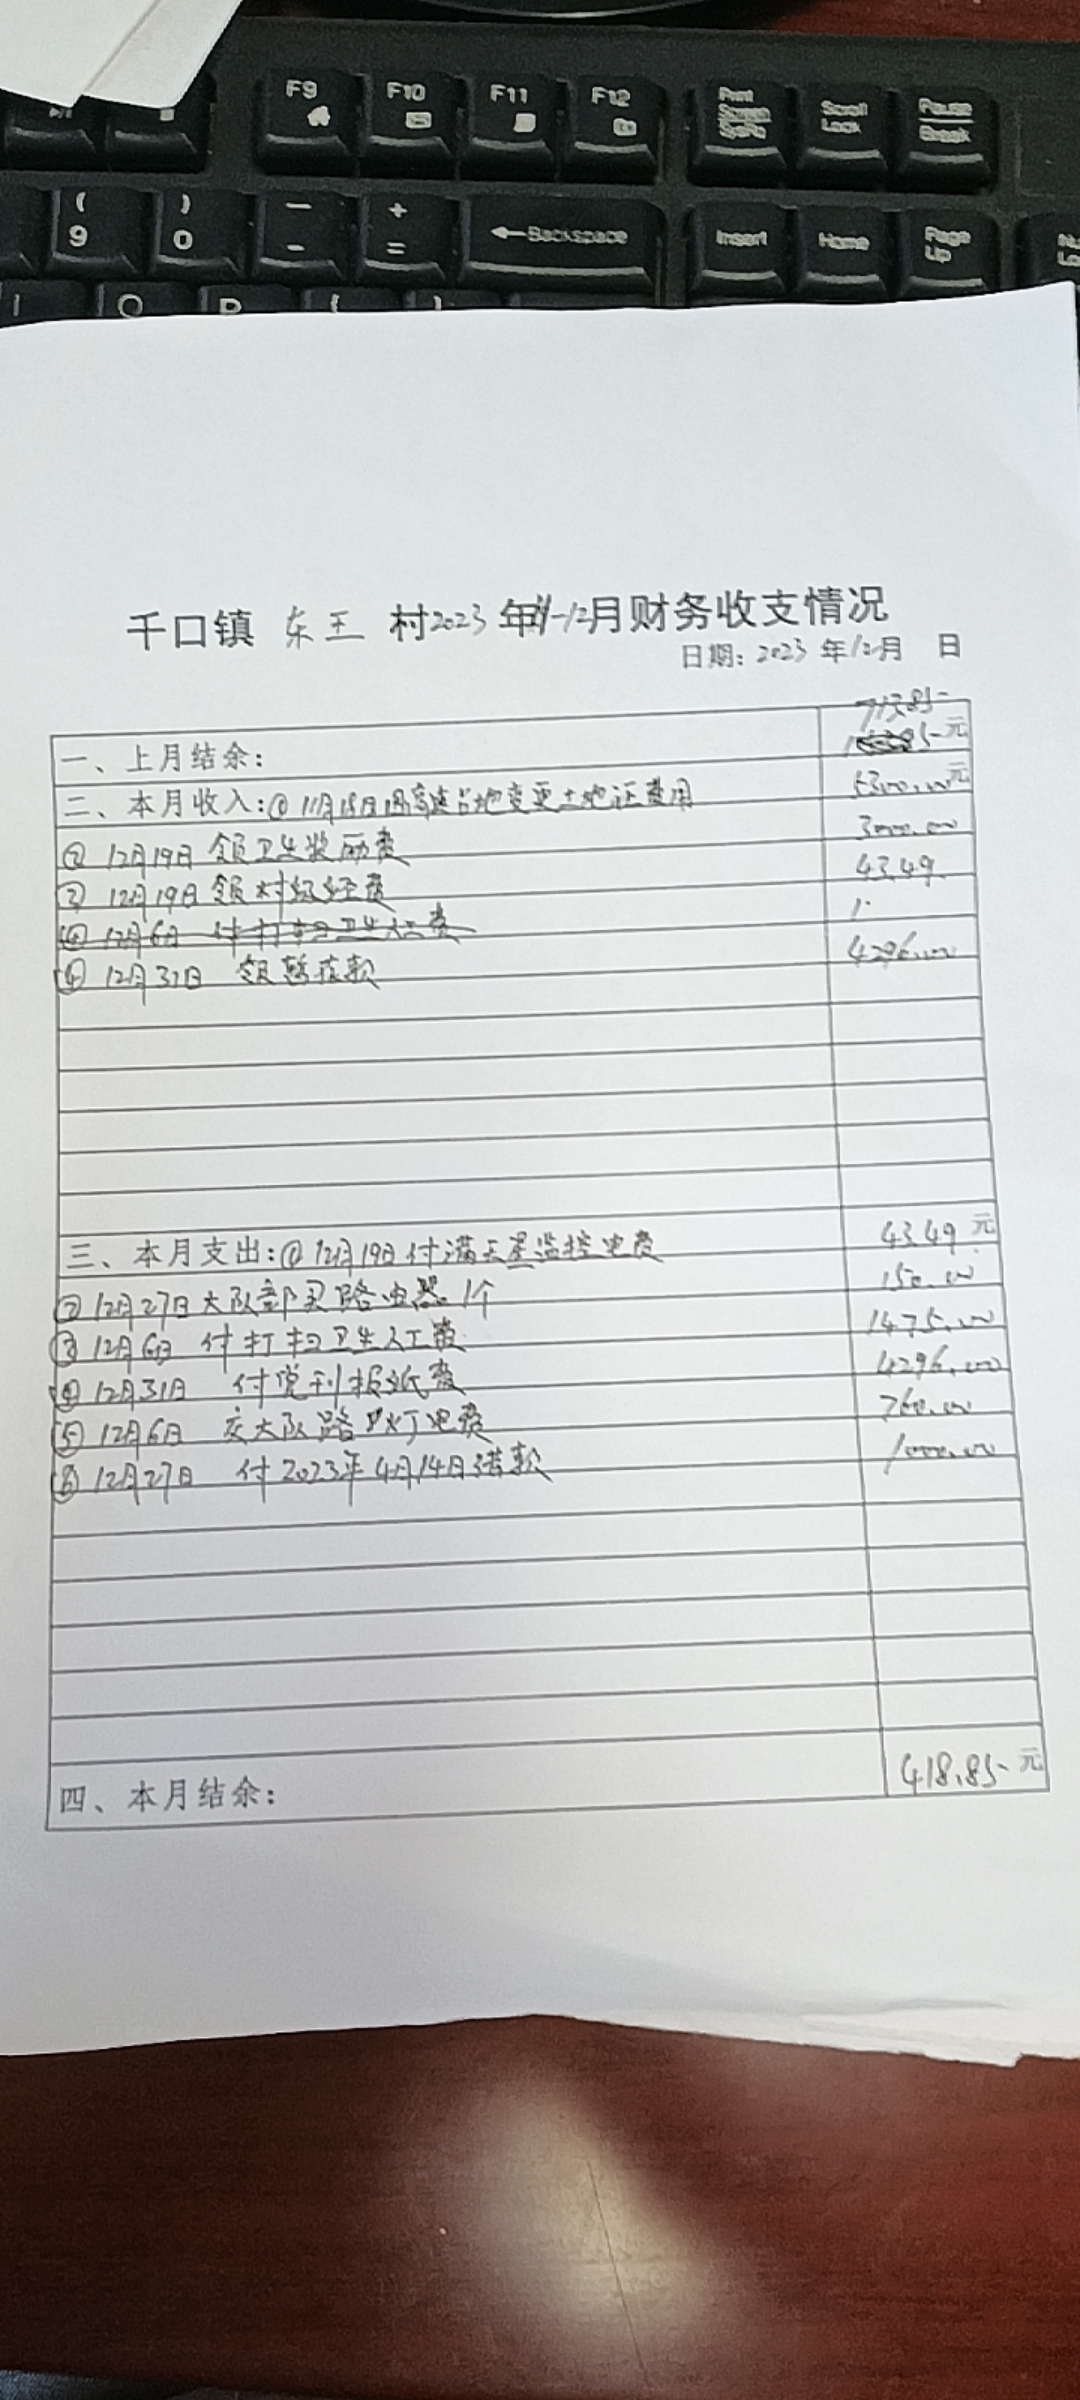 F9 F10 F11 F12 Print Screen SysRq Scroll Lock Pause Break
( 9 ) 0 — - + = ←Backspace Insert Home Page Up
千口镇 东王 村2023 年11-12月财务收支情况
日期：2023 年12月 日
713.85
一、上月结余： 元
二、本月收入：① 11月15日 高速占地变更土地证费用 5300.00元
② 12月19日 领卫生奖励费 3000.00
③ 12月19日 领村级经费 43.49
④ 12月6日 付打扫卫生人工费
④ 12月31日 领暂存款 4296.00
三、本月支出：① 12月19日付满天星监控电费 43.49 元
② 12月27日大队部买路由器 1个 150.00
③ 12月6日 付打扫卫生人工费 1475.00
④ 12月31日 付党刊报纸费 4296.00
⑤ 12月6日 交大队路灯电费 760.00
⑥ 12月27日 付2023年4月14日借款
四、本月结余： 418.85 元